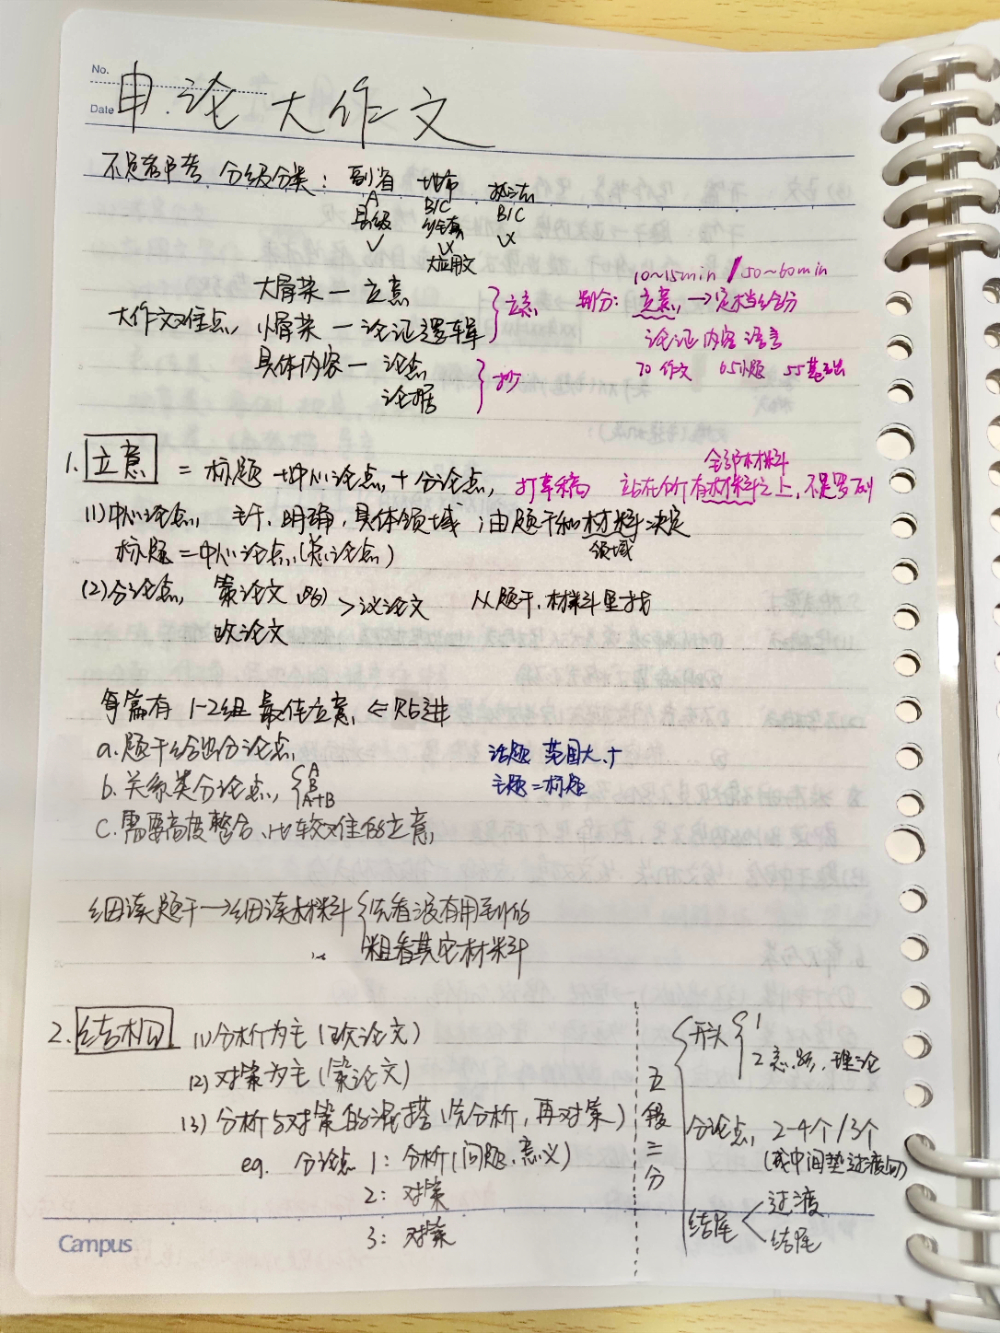 No.
Date
申论大作文
不是省部考 分级分类: 副省 地市 执法
A B/C B/C
县级 乡镇
✓ ✓x ✓x
大应用文
10~15min / 50~60min
大作文难点, 大骨架—立意 } 立意 划分: 立意, →定档给分
小骨架—论证逻辑 论证 内容 语言
具体内容—论点 } 抄 70 作文 65小题 55基础
论据
1. 立意 = 标题+中心论点+分论点, 打草稿 站在所有材料之上, 不是罗列
全部材料
(1)中心论点, 主干, 明确, 具体领域; 由题干和材料决定
领域
标题=中心论点(总论点)
(2)分论点, 策论文 > 议论文 从题干、材料里找
政论文
每篇有 1-2组 最佳立意, ⇐贴进
a.题干给出分论点
话题 范围大,
主题=标题
b.关系类分论点, { A B A+B
C.需要高度整合、比较难的立意,
细读题干→细读材料 { 先看没有用到的
粗看其它材料
2. 结构 (1)分析为主(政论文)
(2)对策为主(策论文)
(3)分析与对策的混搭(先分析,再对策)
eg. 分论点 1: 分析(问题、意义)
2: 对策
3: 对策
五段三分
开头 { 1
2 意、断、理论
分论点, 2-4个/3个
(或中间垫过渡句)
结尾 < 过渡
结尾
Campus